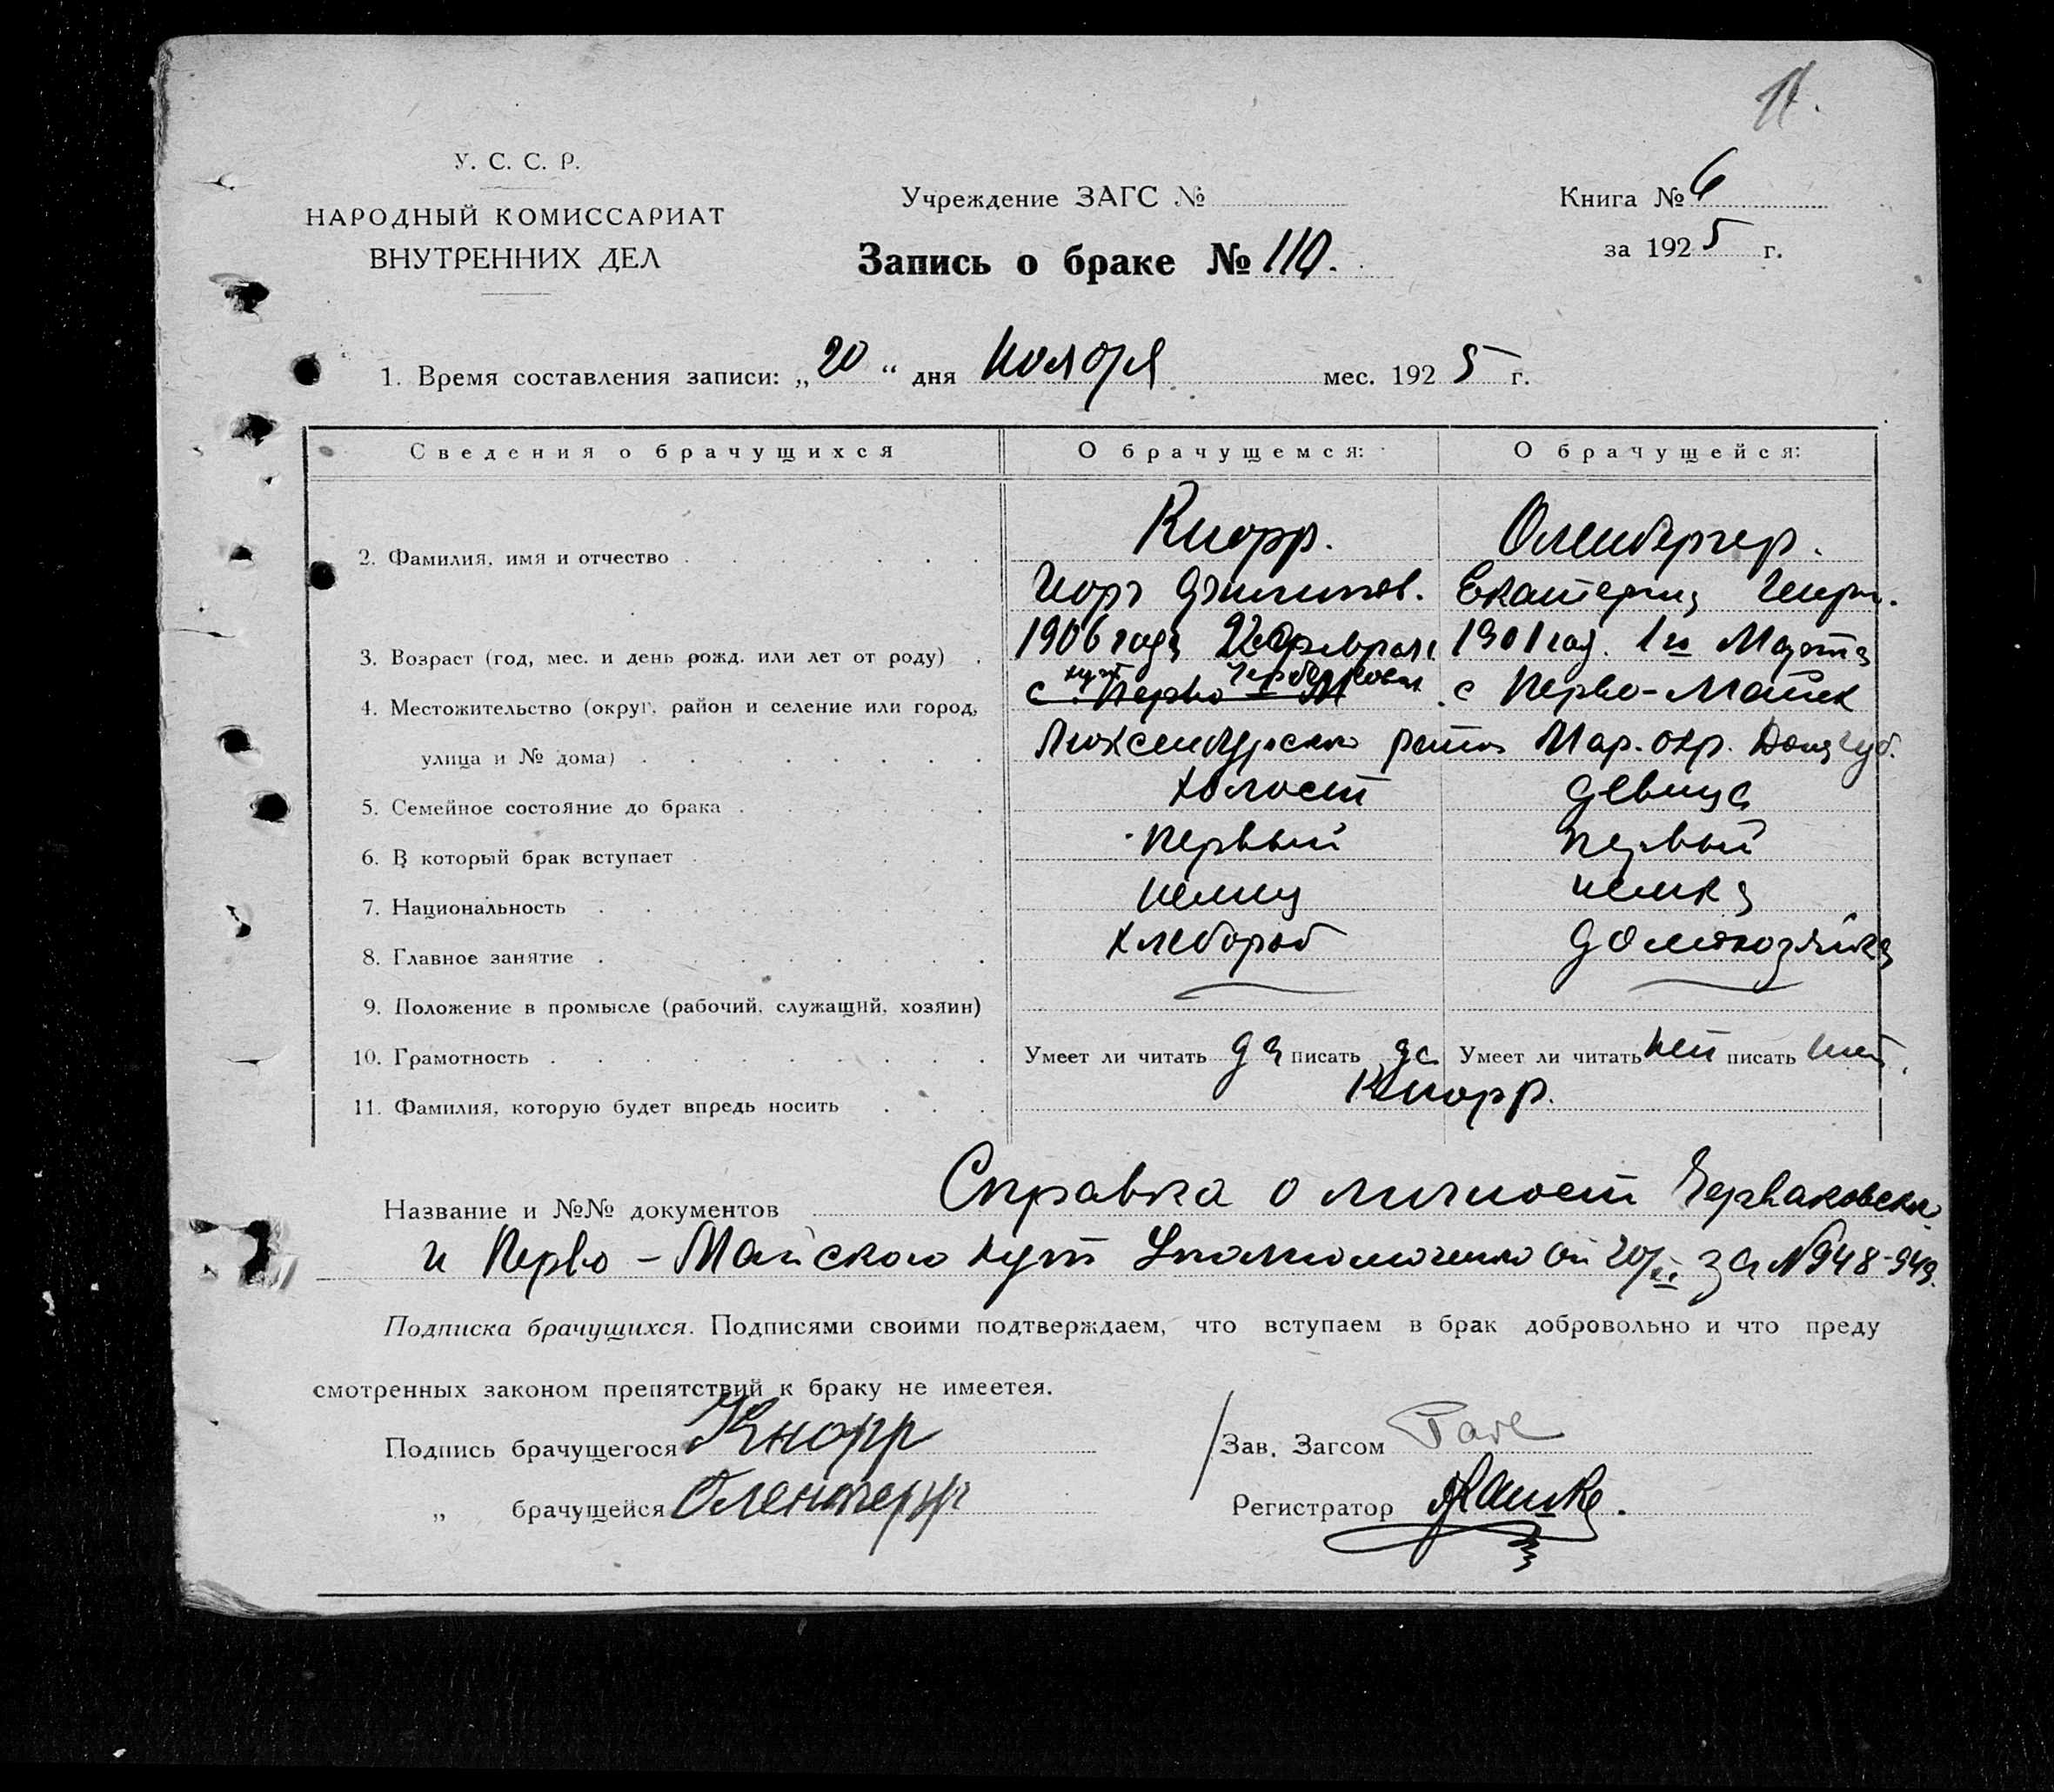 11.
У. С. С. Р.
НАРОДНЫЙ КОМИССАРИАТ
ВНУТРЕННИХ ДЕЛ
Учреждение ЗАГС №
Запись о браке № 110.
Книга № 6
за 1925 г.
1. Время составления записи: „20“ дня Ноября мес. 1925 г.
Сведения о брачущихся О брачущемся: О брачущейся:
Кнорр. Оленбергер.
2. Фамилия, имя и отчество
Екатерина Генрих.
3. Возраст (год, мес. и день рожд. или лет от роду) 1906 года февраля 1901 год. 1го Марта
хут Червяковск
4. Местожительство (округ, район и селение или город, с. Перво-М с Перво-Майск
улица и № дома) Люксембургского района Мар. окр. Дон губ.
5. Семейное состояние до брака холост девица
6. В который брак вступает первый первый
7. Национальность немец немка
8. Главное занятие хлебороб домохозяйка
9. Положение в промысле (рабочий, служащий, хозяин)
10. Грамотность Умеет ли читать да писать да Умеет ли читать нет писать нет.
11. Фамилия, которую будет впредь носить Кнорр.
Название и №№ документов Справка о личности Червяковского
и Перво-Майского хут Уполномоченного от 20/XI за № 948-949.
Подписка брачущихся. Подписями своими подтверждаем, что вступаем в брак добровольно и что преду
смотренных законом препятствий к браку не имеется.
Подпись брачущегося Кнорр
Зав. Загсом
„ брачущейся
Регистратор